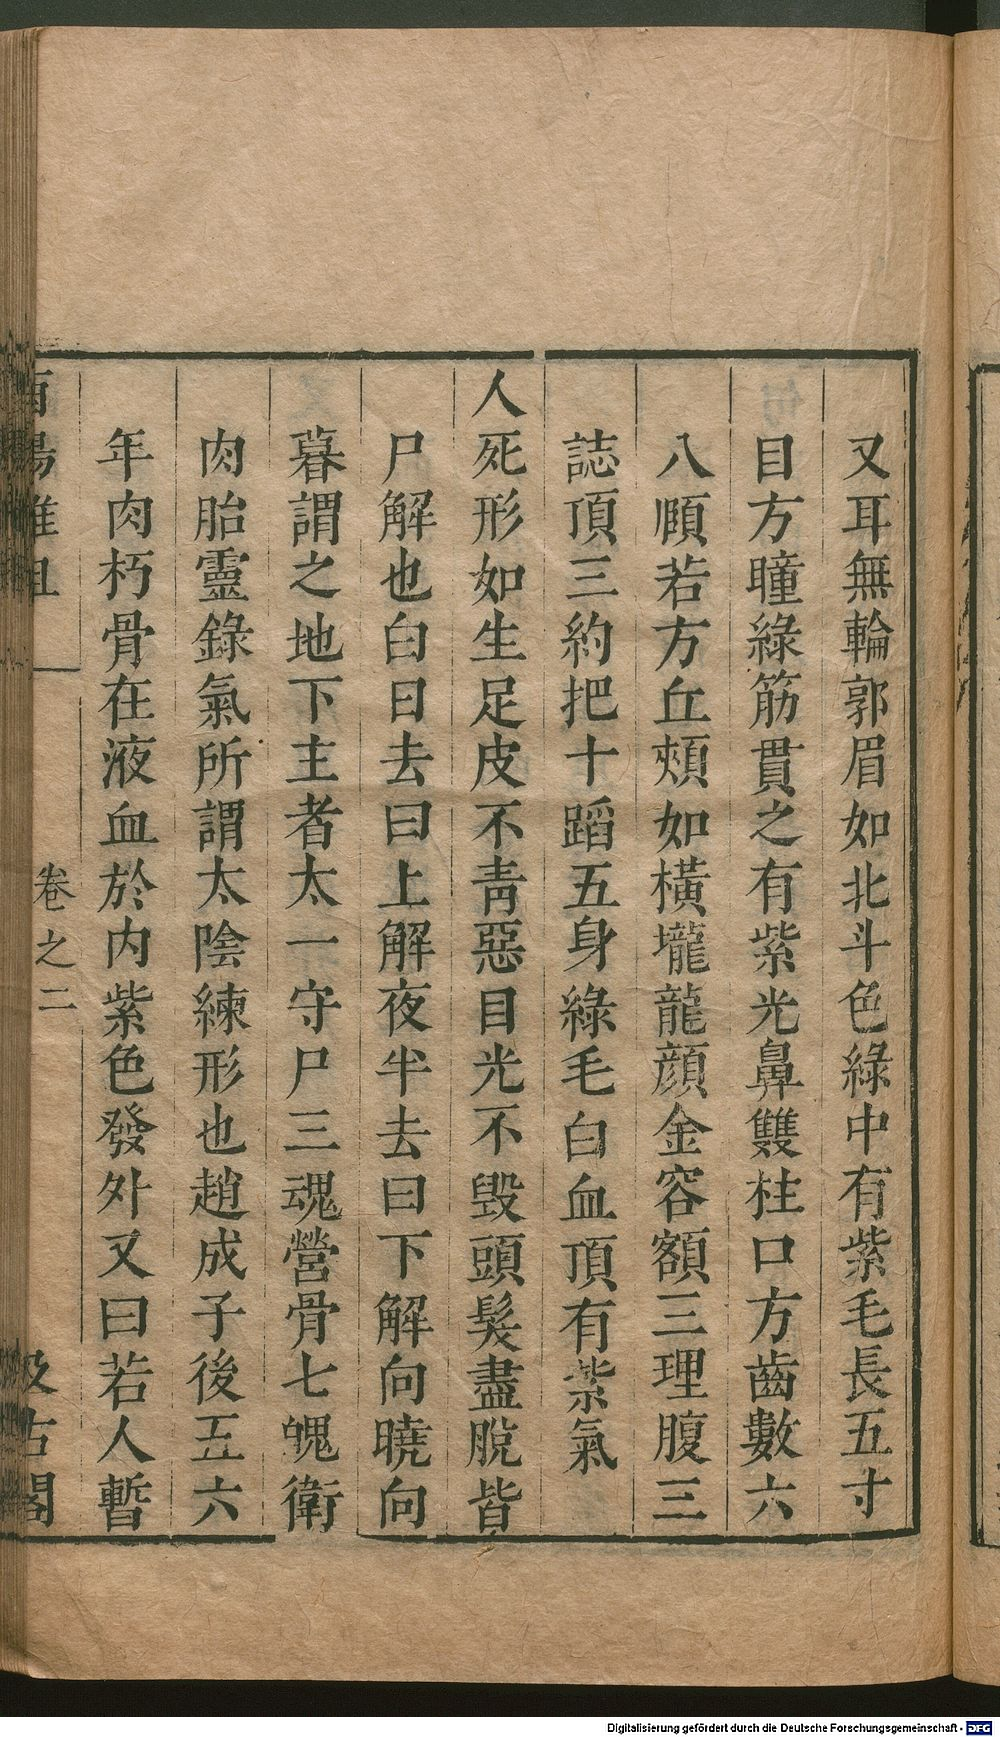 又耳無輪郭眉如北斗色綠中有紫毛長五寸
目方瞳綠筋貫之有紫光鼻雙柱口方齒數六
八頤若方丘頰如橫壠龍顔金容額三理腹三
誌頂三約把十蹈五身綠毛白血頂有紫氣
人死形如生足皮不青惡目光不毀頭髮盡脫皆
尸解也白日去曰上解夜半去曰下解向曉向
暮謂之地下主者太一守尸三魂營骨七魄衛
肉胎靈錄氣所謂太陰練形也趙成子後五六
年肉朽骨在液血於內紫色發外又曰若人暫
酉陽雜俎 卷之二 汲古閣
Digitalisierung gefördert durch die Deutsche Forschungsgemeinschaft - DFG